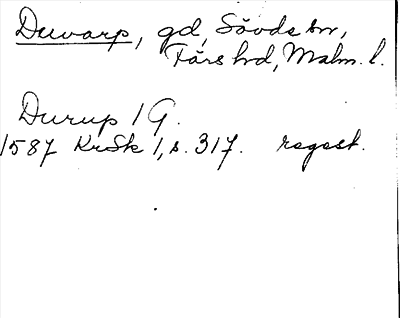 Duvarp, gd, Sövds sn,
Färs hd, Malm. l.
Durup 1 G.
1587 KrSk 1, s. 317. regest.